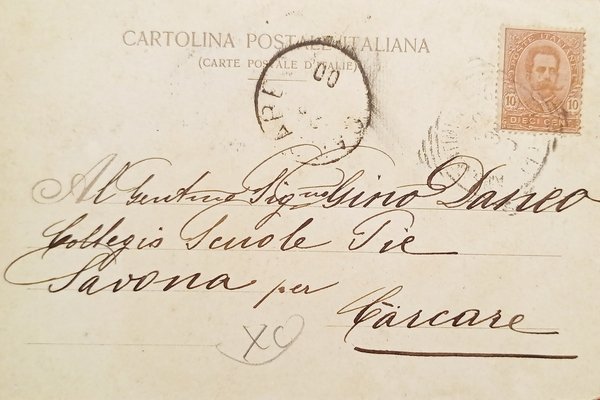 CARTOLINA POSTALE ITALIANA
(CARTE POSTALE D'ITALIE)
POSTE ITALIANE
10 10
DIECI CENT.
00
Al Gentmo Signor Gino Daneo
Collegio Scuole Pie
Savona per
Càrcare
XC